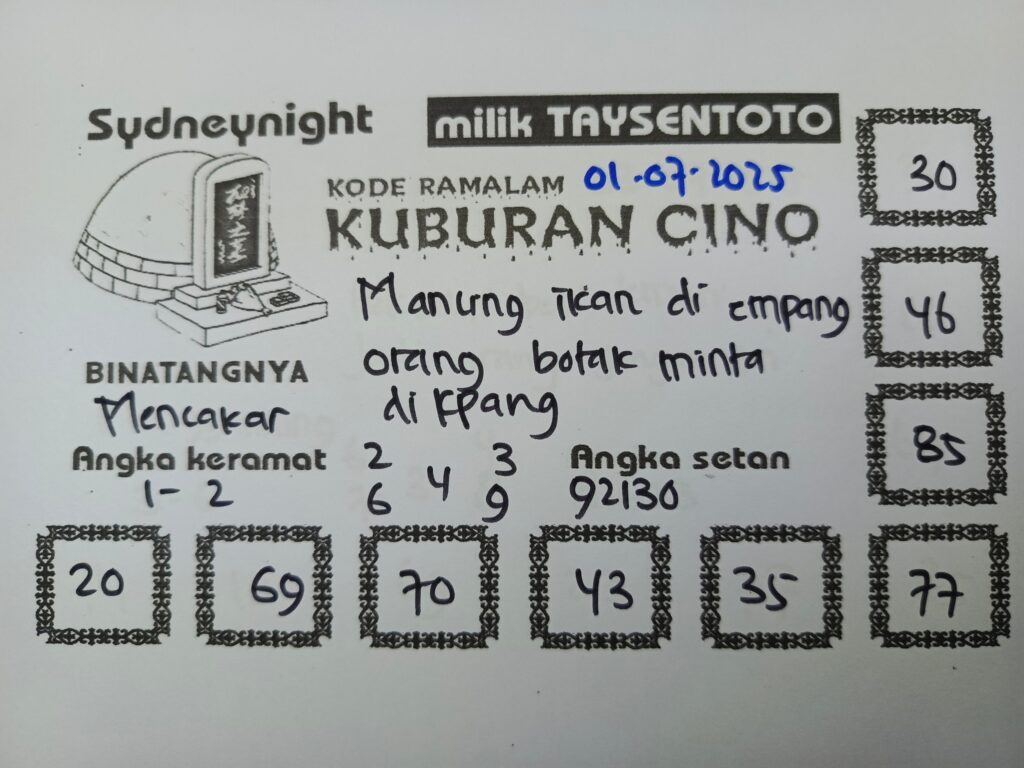 Sydneynight
milik TAYSENTOTO
KODE RAMALAM 01.07.2025
KUBURAN CINO
Manung ikan di empang
orang botak minta
di kpang
BINATANGNYA
Mencakar
Angka keramat
1- 2
2 3
4
6 9
Angka setan
92130
30
46
85
20 69 70 43 35 77